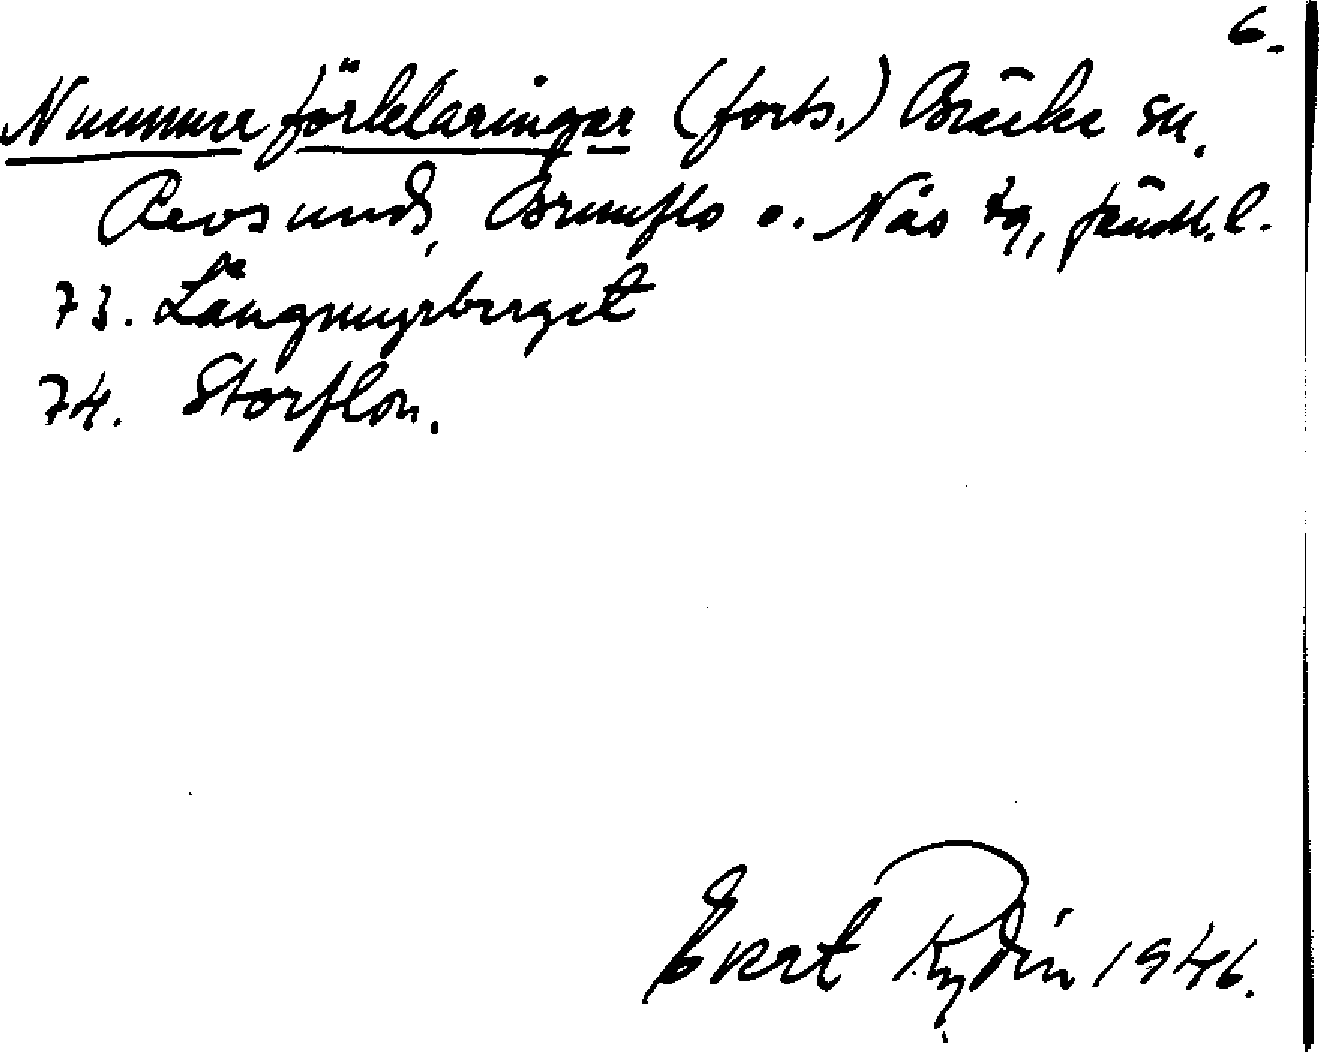 6.
Nummerförklaringar (forts.) Bräcke sn.
Revsunds, Brunflo o. Näs tg, Jämtl. l.
73. Långmyrberget
74. Storflon.
Evert Rydin 1946.